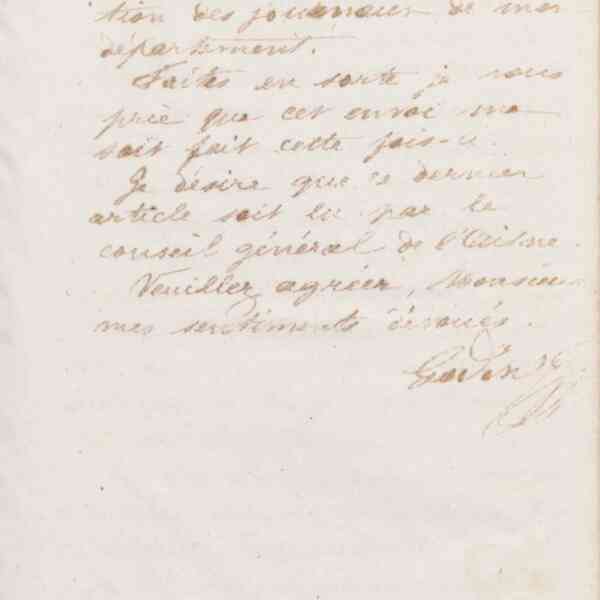 tion des journaux de mon
département.
Faites en sorte je vous
prie que cet envoi me
soit fait cette fois-ci.
Je désire que ce dernier
article soit lu par le
conseil général de l'Aisne.
Veuillez agréer, Monsieur
mes sentiments dévoués.
Godin